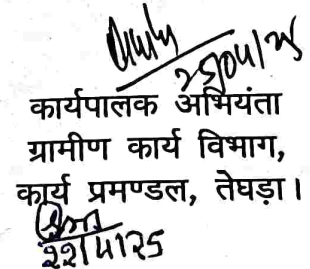 25/04/25
कार्यपालक अभियंता
ग्रामीण कार्य विभाग,
कार्य प्रमण्डल, तेघड़ा।
22/4/25